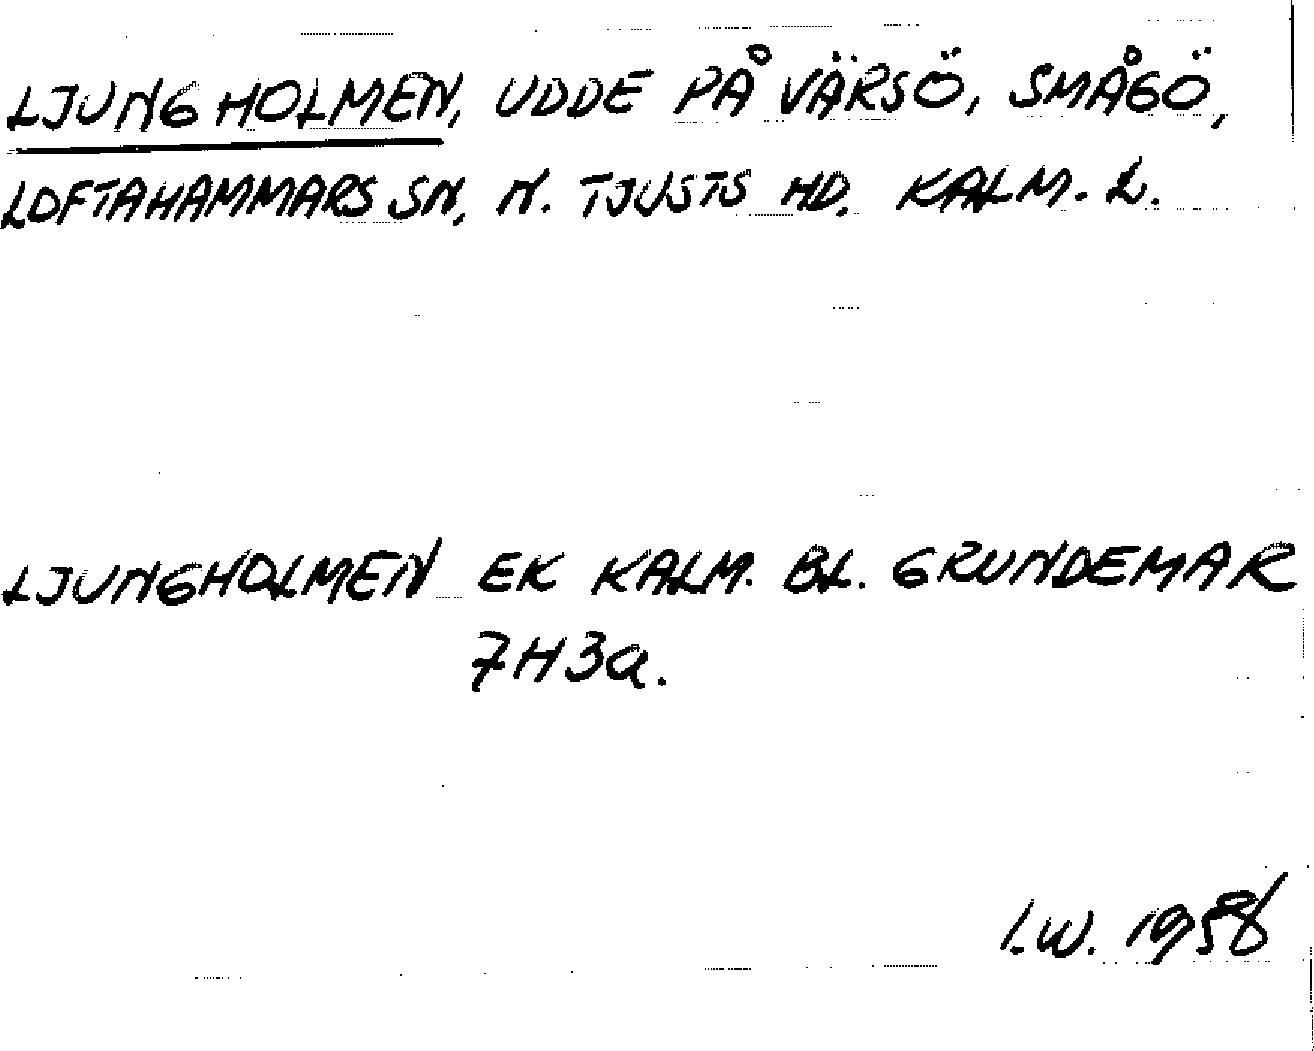 LJUNGHOLMEN, UDDE PÅ VÄRSÖ, SMÅGÖ,
LOFTAHAMMARS SN, N. TJUSTS HD. KALM. L.
LJUNGHOLMEN EK KALM. BL. GRUNDEMAR
7H3a.
I.W. 1958